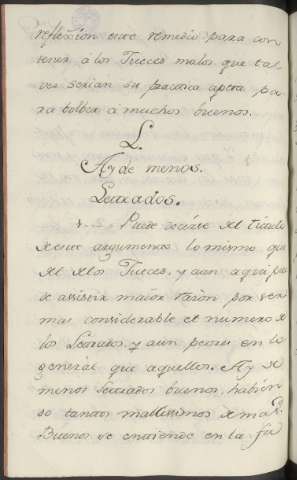 reflexsion este remedio para con
tener á los Jueces malos que tal
ves serian su practica apta pa
ra bolber a muchos buenos.
L.
Ay de menos.
Letrados.
Puede decirse del titulo
de este argumento lo mismo que
del de los Jueces, y aun aqui pu
de assistir maior razon por ser
mas considerable el numero de
los Letrados, y aun peores en lo
general que aquellos. Ay de
menos Letrados buenos, habien
do tantos malissimos de mas.
Buenos se entiende en la